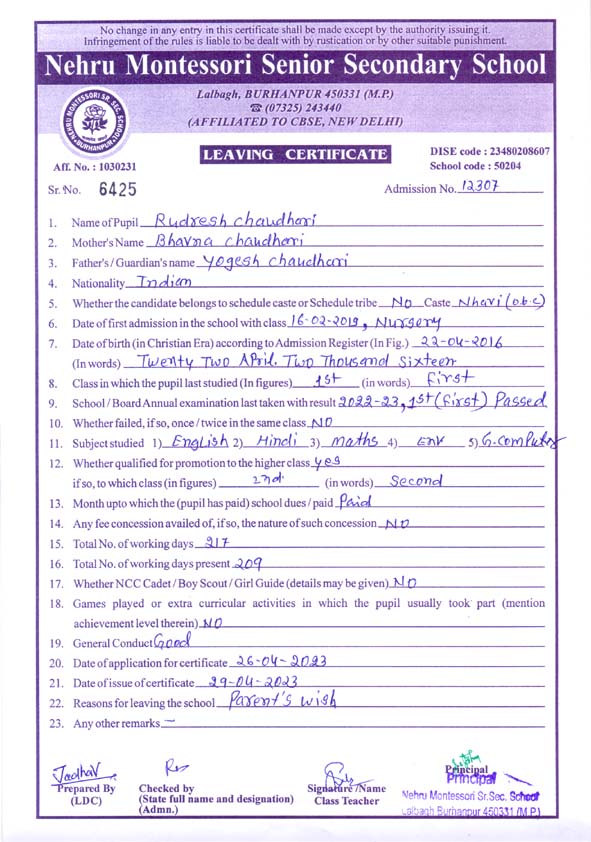 No change in any entry in this certificate shall be made except by the authority issuing it.
Infringement of the rules is liable to be dealt with by rustication or by other suitable punishment.
Nehru Montessori Senior Secondary School
Lalbagh, BURHANPUR 450331 (M.P.)
☎ (07325) 243440
(AFFILIATED TO CBSE, NEW DELHI)
NEHRU MONTESSORI SR. SEC. SCHOOL
BURHANPUR
LEAVING CERTIFICATE
DISE code : 23480208607
Aff. No. : 1030231 School code : 50204
Sr. No. 6425 Admission No. 12307
1. Name of Pupil Rudresh Chaudhari
2. Mother's Name Bhavna chaudhari
3. Father's / Guardian's name Yogesh chaudhari
4. Nationality Indian
5. Whether the candidate belongs to schedule caste or Schedule tribe No Caste Nhavi (o.b.c)
6. Date of first admission in the school with class 16-02-2019, Nursery
7. Date of birth (in Christian Era) according to Admission Register (In Fig.) 22-04-2016
(In words) Twenty Two April. Two Thousand Sixteen
8. Class in which the pupil last studied (In figures) 1st (in words) first
9. School / Board Annual examination last taken with result 2022-23, 1st (first) Passed
10. Whether failed, if so, once / twice in the same class NO
11. Subject studied 1) English 2) Hindi 3) maths 4) ENV 5) G.Computer
12. Whether qualified for promotion to the higher class yes
if so, to which class (in figures) 2nd (in words) Second
13. Month upto which the (pupil has paid) school dues / paid Paid
14. Any fee concession availed of, if so, the nature of such concession NO
15. Total No. of working days 217
16. Total No. of working days present 209
17. Whether NCC Cadet / Boy Scout / Girl Guide (details may be given) NO
18. Games played or extra curricular activities in which the pupil usually took part (mention
achievement level therein) NO
19. General Conduct Good
20. Date of application for certificate 26-04-2023
21. Date of issue of certificate 29-04-2023
22. Reasons for leaving the school Parent's wish
23. Any other remarks —
Jadhav
Prepared By Checked by Signature / Name Principal
(LDC) (State full name and designation) Class Teacher Principal
(Admn.) Nehru Montessori Sr.Sec. School
Lalbagh Burhanpur 450331 (M.P.)